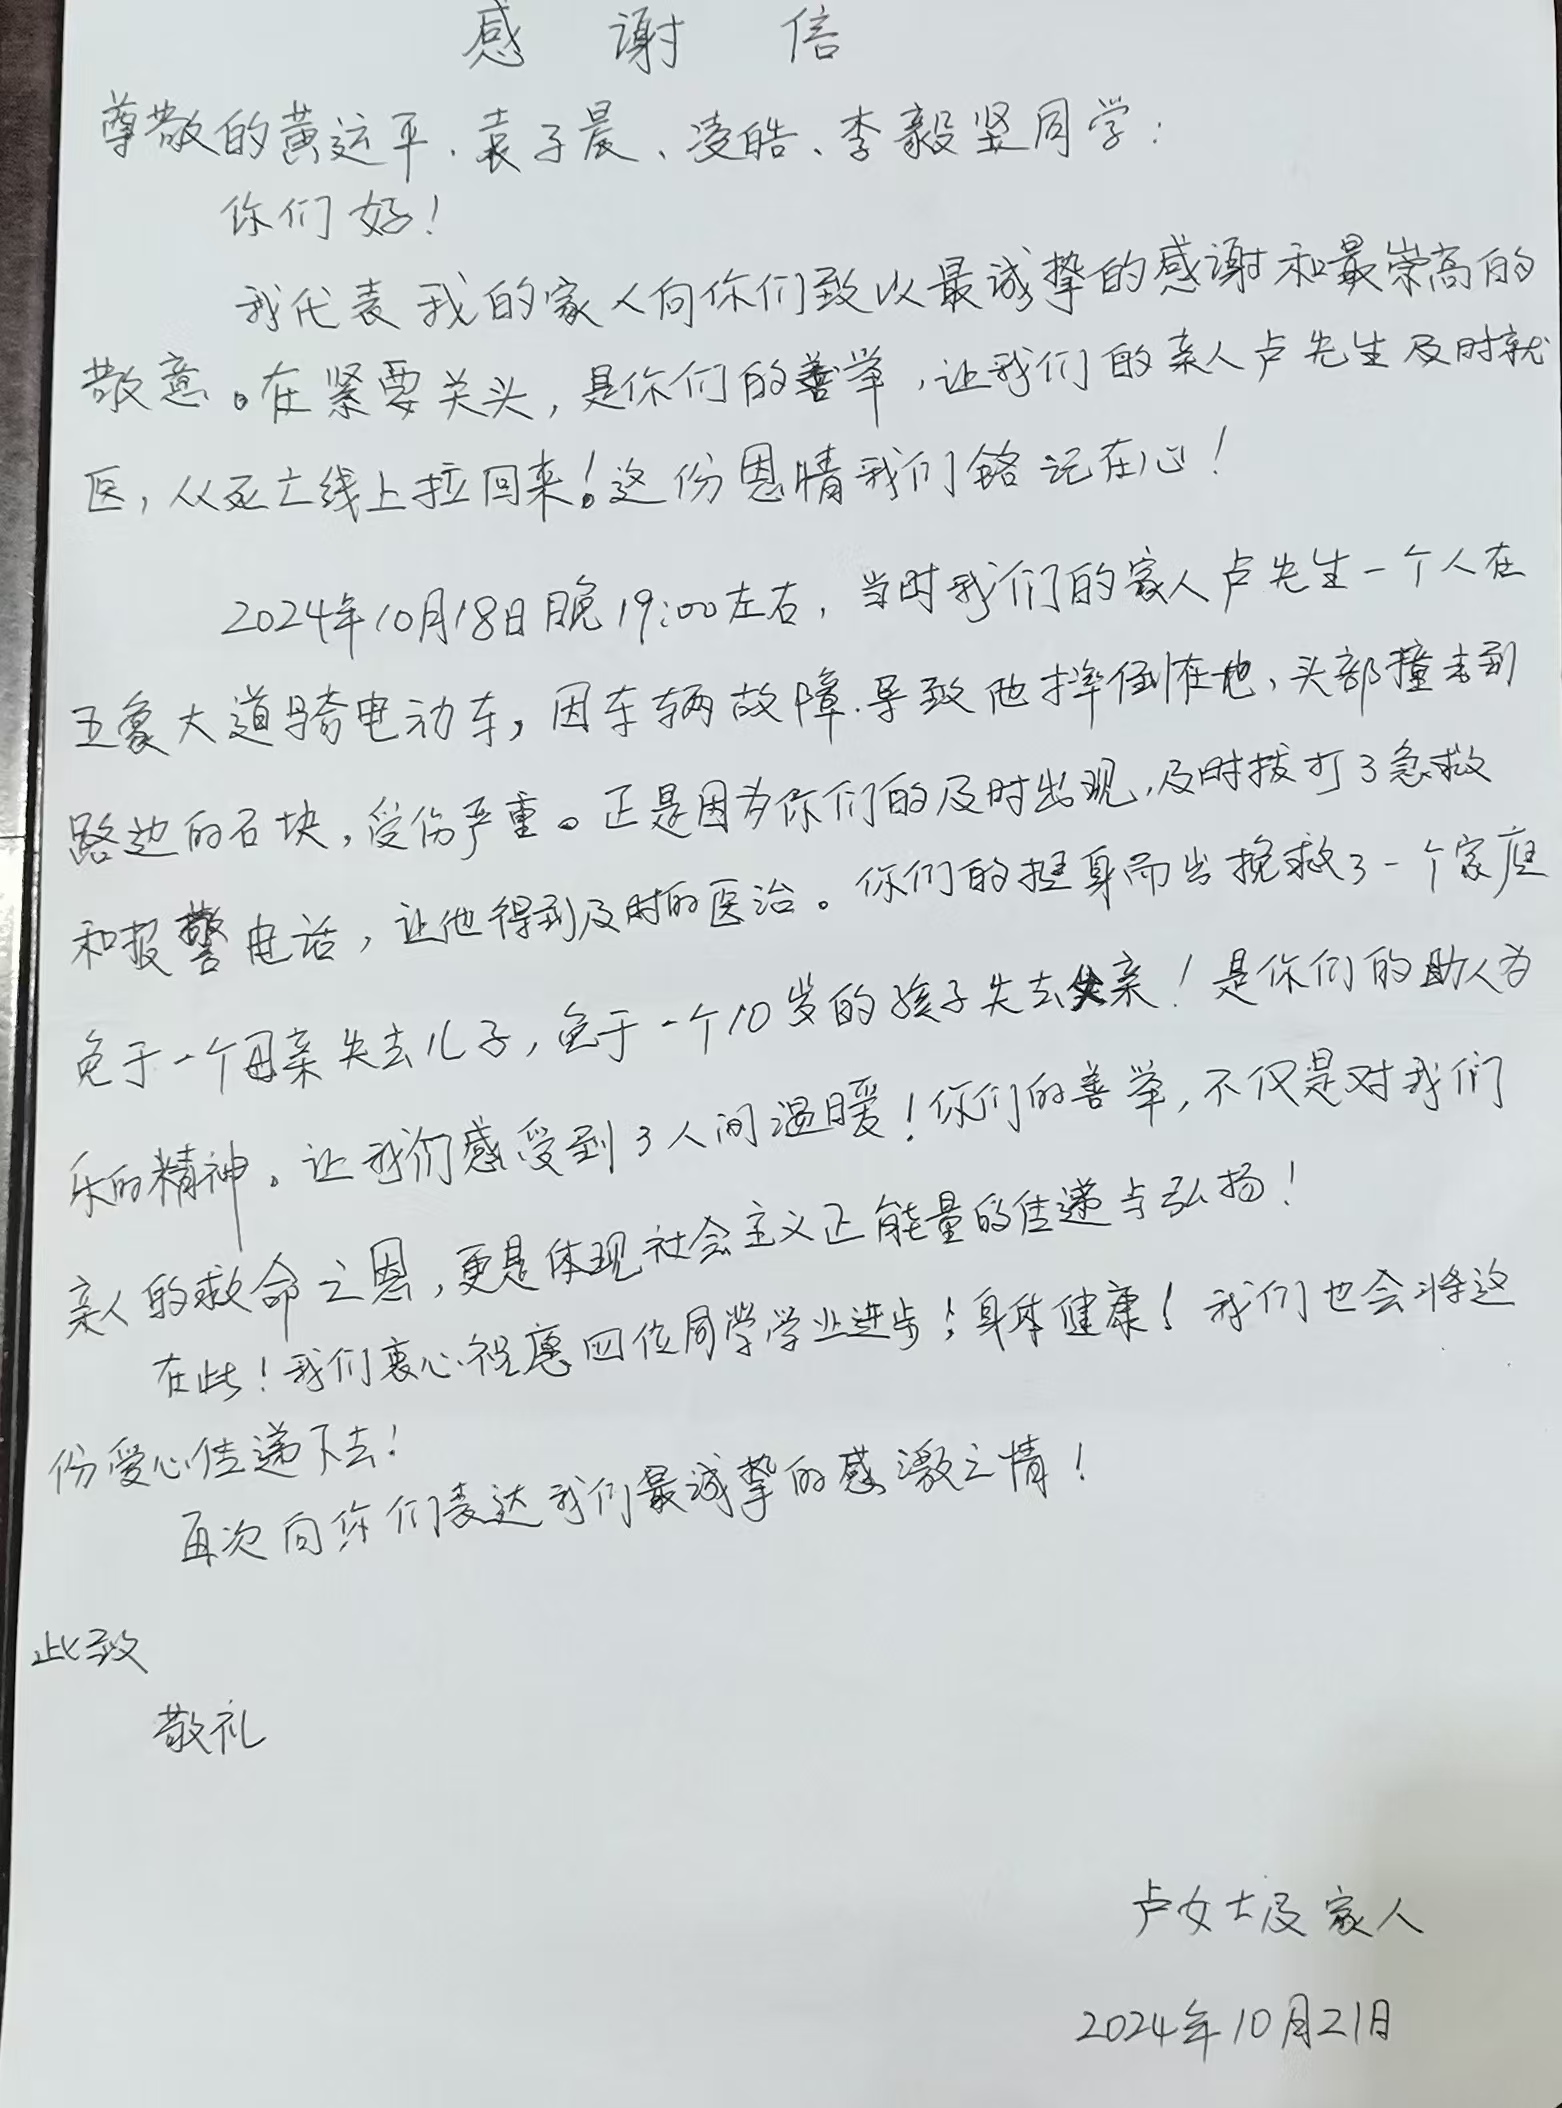 感谢信
尊敬的黄运平、袁子晨、凌皓、李毅坚同学：
你们好！
我代表我的家人向你们致以最诚挚的感谢和最崇高的
敬意。在紧要关头，是你们的善举，让我们的亲人卢先生及时就
医，从死亡线上拉回来！这份恩情我们铭记在心！
2024年10月18日晚19:00左右，当时我们的家人卢先生一个人在
五象大道骑电动车，因车辆故障.导致他摔倒在地，头部撞击到
路边的石块，受伤严重。正是因为你们的及时出现，及时拔打了急救
和报警电话，让他得到及时的医治。你们的挺身而出挽救了一个家庭
免于一个母亲失去儿子，免于一个10岁的孩子失去父亲！是你们的助人为
乐的精神。让我们感受到了人间温暖！你们的善举，不仅是对我们
亲人的救命之恩，更是体现社会主义正能量的传递与弘扬！
在此！我们衷心祝愿四位同学学业进步！身体健康！我们也会将这
份爱心传递下去！
再次向你们表达我们最诚挚的感激之情！
此致
敬礼
卢女士及家人
2024年10月21日